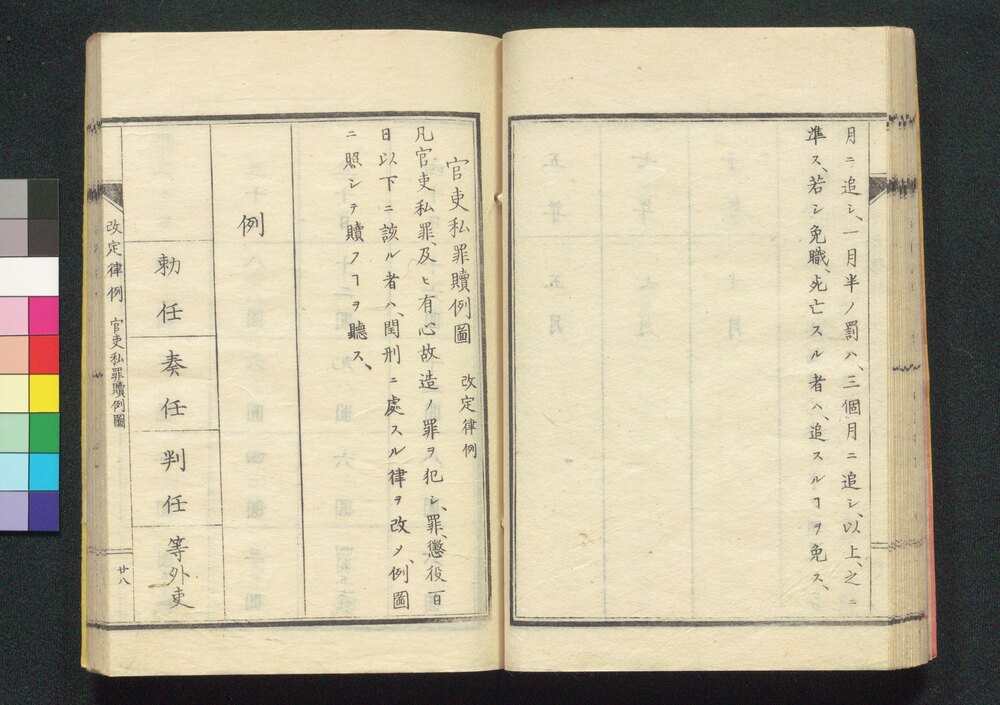 月ニ追シ、一月半ノ罰ハ、三個月ニ追シ、以上、之ニ
準ス、若シ免職、死亡スル者ハ、追スルヿヲ免ス、
官吏私罪贖例圖 改定律例
凡官吏私罪、及ヒ有心故造ノ罪ヲ犯シ、罪、懲役百
日以下ニ該ル者ハ、閏刑ニ處スル律ヲ改メ、例圖
ニ照シテ贖フヿヲ聽ス、
例
勅任
奏任
判任
等外吏
改定律例 官吏私罪贖例圖
廿八